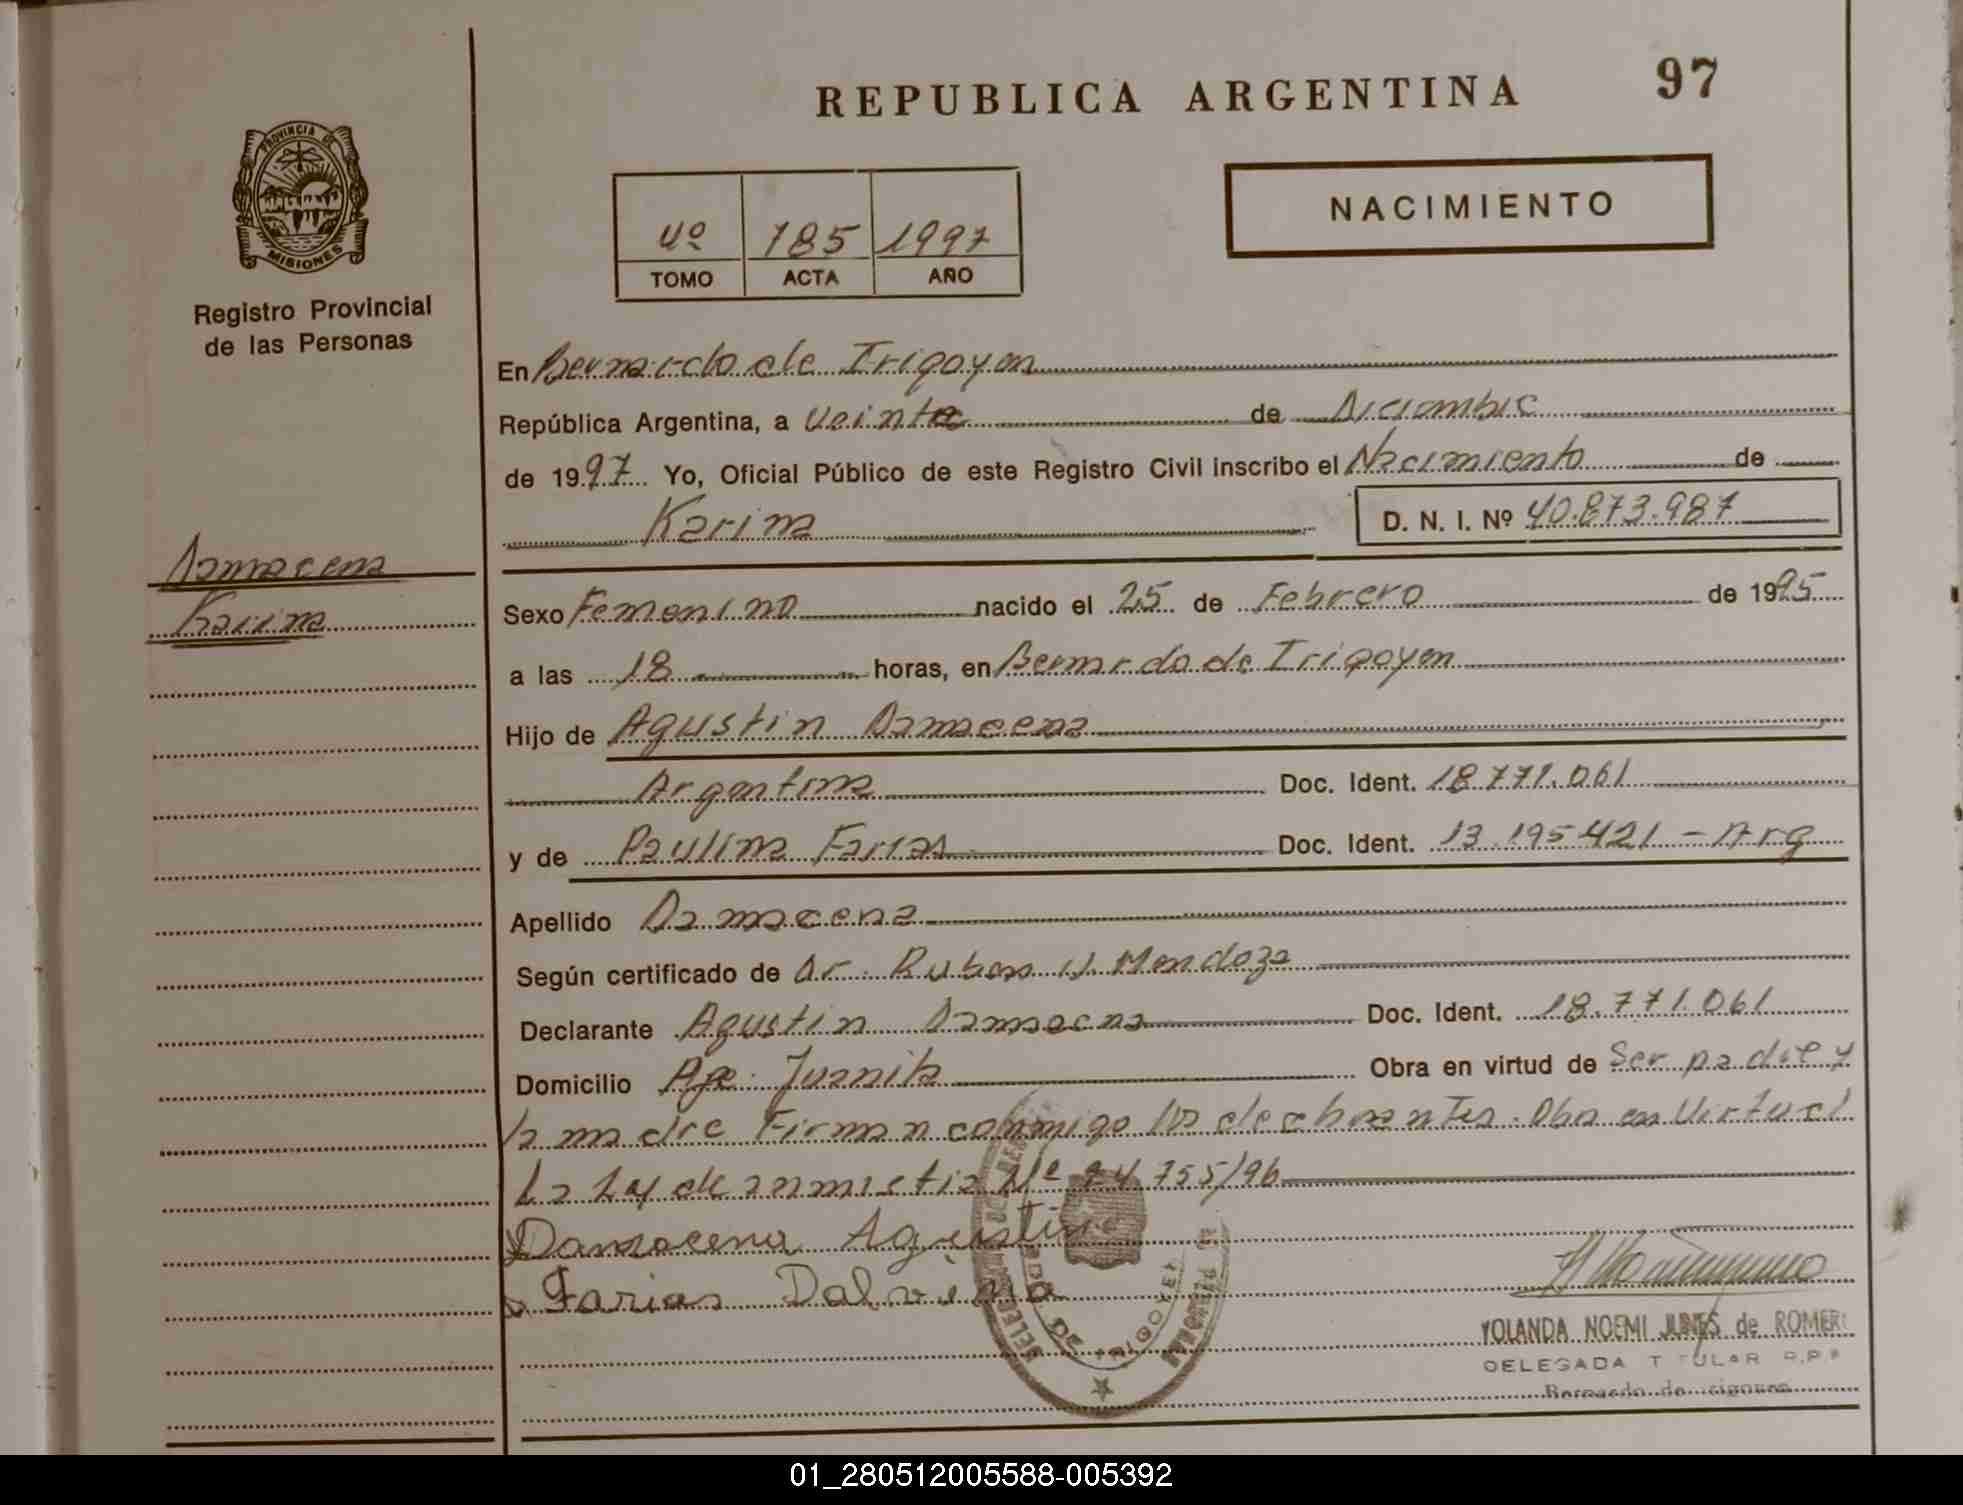 REPUBLICA ARGENTINA
97
PROVINCIA DE
MISIONES
Registro Provincial
de las Personas
4º 185 1997
TOMO ACTA AÑO
NACIMIENTO
En Bernardo de Irigoyen
República Argentina, a veinte de Diciembre
de 1997 Yo, Oficial Público de este Registro Civil inscribo el Nacimiento de
Karina D. N. I. Nº 40.873.987
Damacena
Karina
Sexo Femenino nacido el 25 de Febrero de 1995
a las 18 horas, en Bernardo de Irigoyen
Hijo de Agustin Damacena
Argentina Doc. Ident. 18.771.061
y de Paulina Farias Doc. Ident. 13.195.421 - Arg
Apellido Damacena
Según certificado de Dr. Ruben Mendoza
Declarante Agustin Damacena Doc. Ident. 18.771.061
Domicilio Juanita Obra en virtud de Ser padre y
la madre Firman conmigo los declarantes. Obra en Virtud
La Ley de amnistia Nº 24.755/96
Damacena Agustin
Farias Dalvina
YOLANDA NOEMI JUNES de ROMERO
DELEGADA TITULAR R.P.P
Bernardo de Irigoyen
01_280512005588-005392